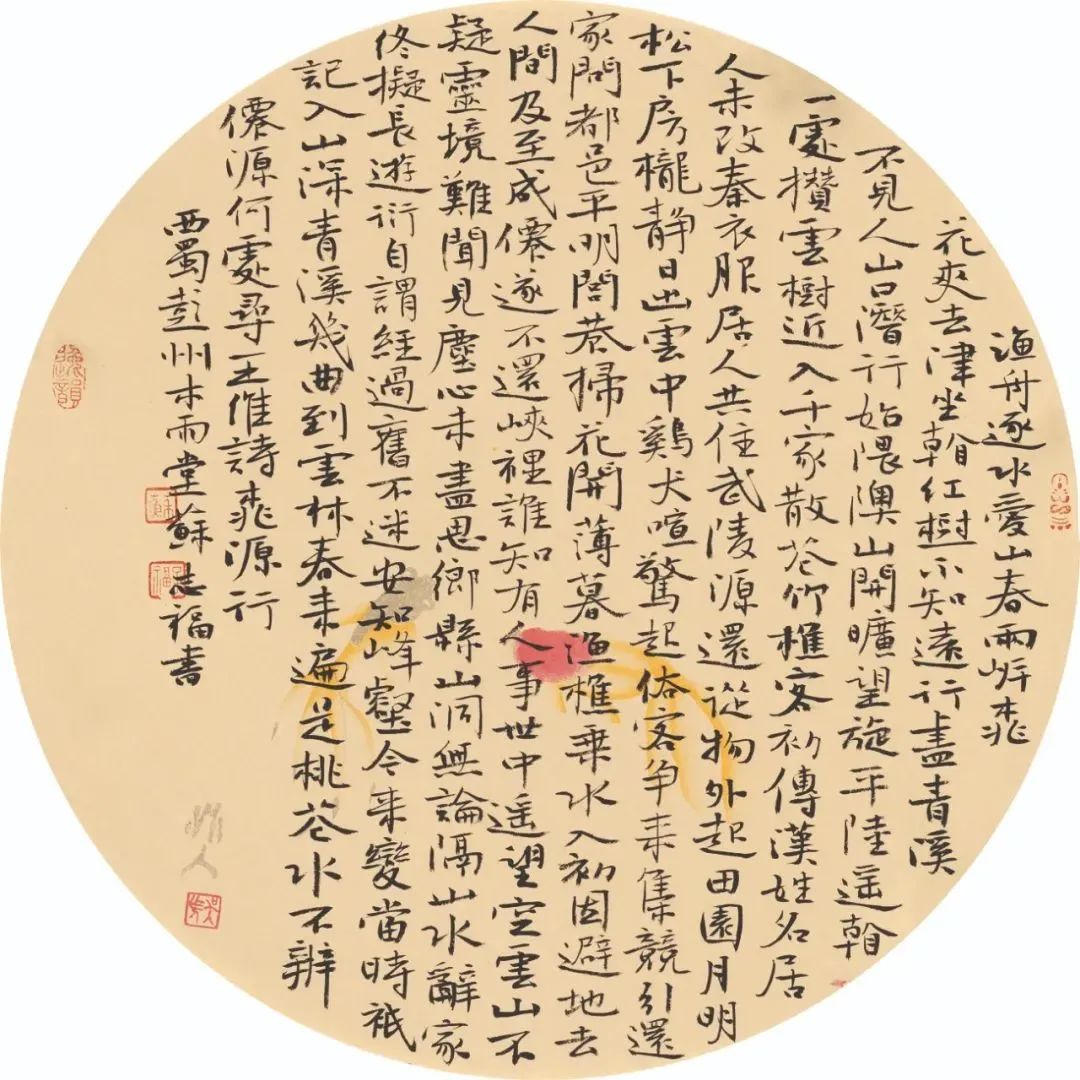 渔舟逐水愛山春兩岍桃
花夾去津坐看紅樹不知遠行盡青溪
不見人山口潛行始隈隩山開曠望旋平陸遥看
一處攢雲樹近入千家散花竹樵客初傳漢姓名居
人未改秦衣服居人共住武陵源還從物外起田園月明
松下房櫳静日出雲中鷄犬喧驚起俗客争来集競引還
家問都邑平明閭巷掃花開薄暮渔樵乗水入初因避地去
人間及至成僊遂不還峽裡誰知有人事世中遥望空雲山不
疑靈境難聞見塵心未盡思鄉縣出洞無論隔山水辭家
終擬長遊衍自謂經過舊不迷安知峰壑今来變當時衹
記入山深青溪幾曲到雲林春来遍是桃花水不辨
僊源何處尋王維詩桃源行
西蜀彭州木雨堂蘇志福書